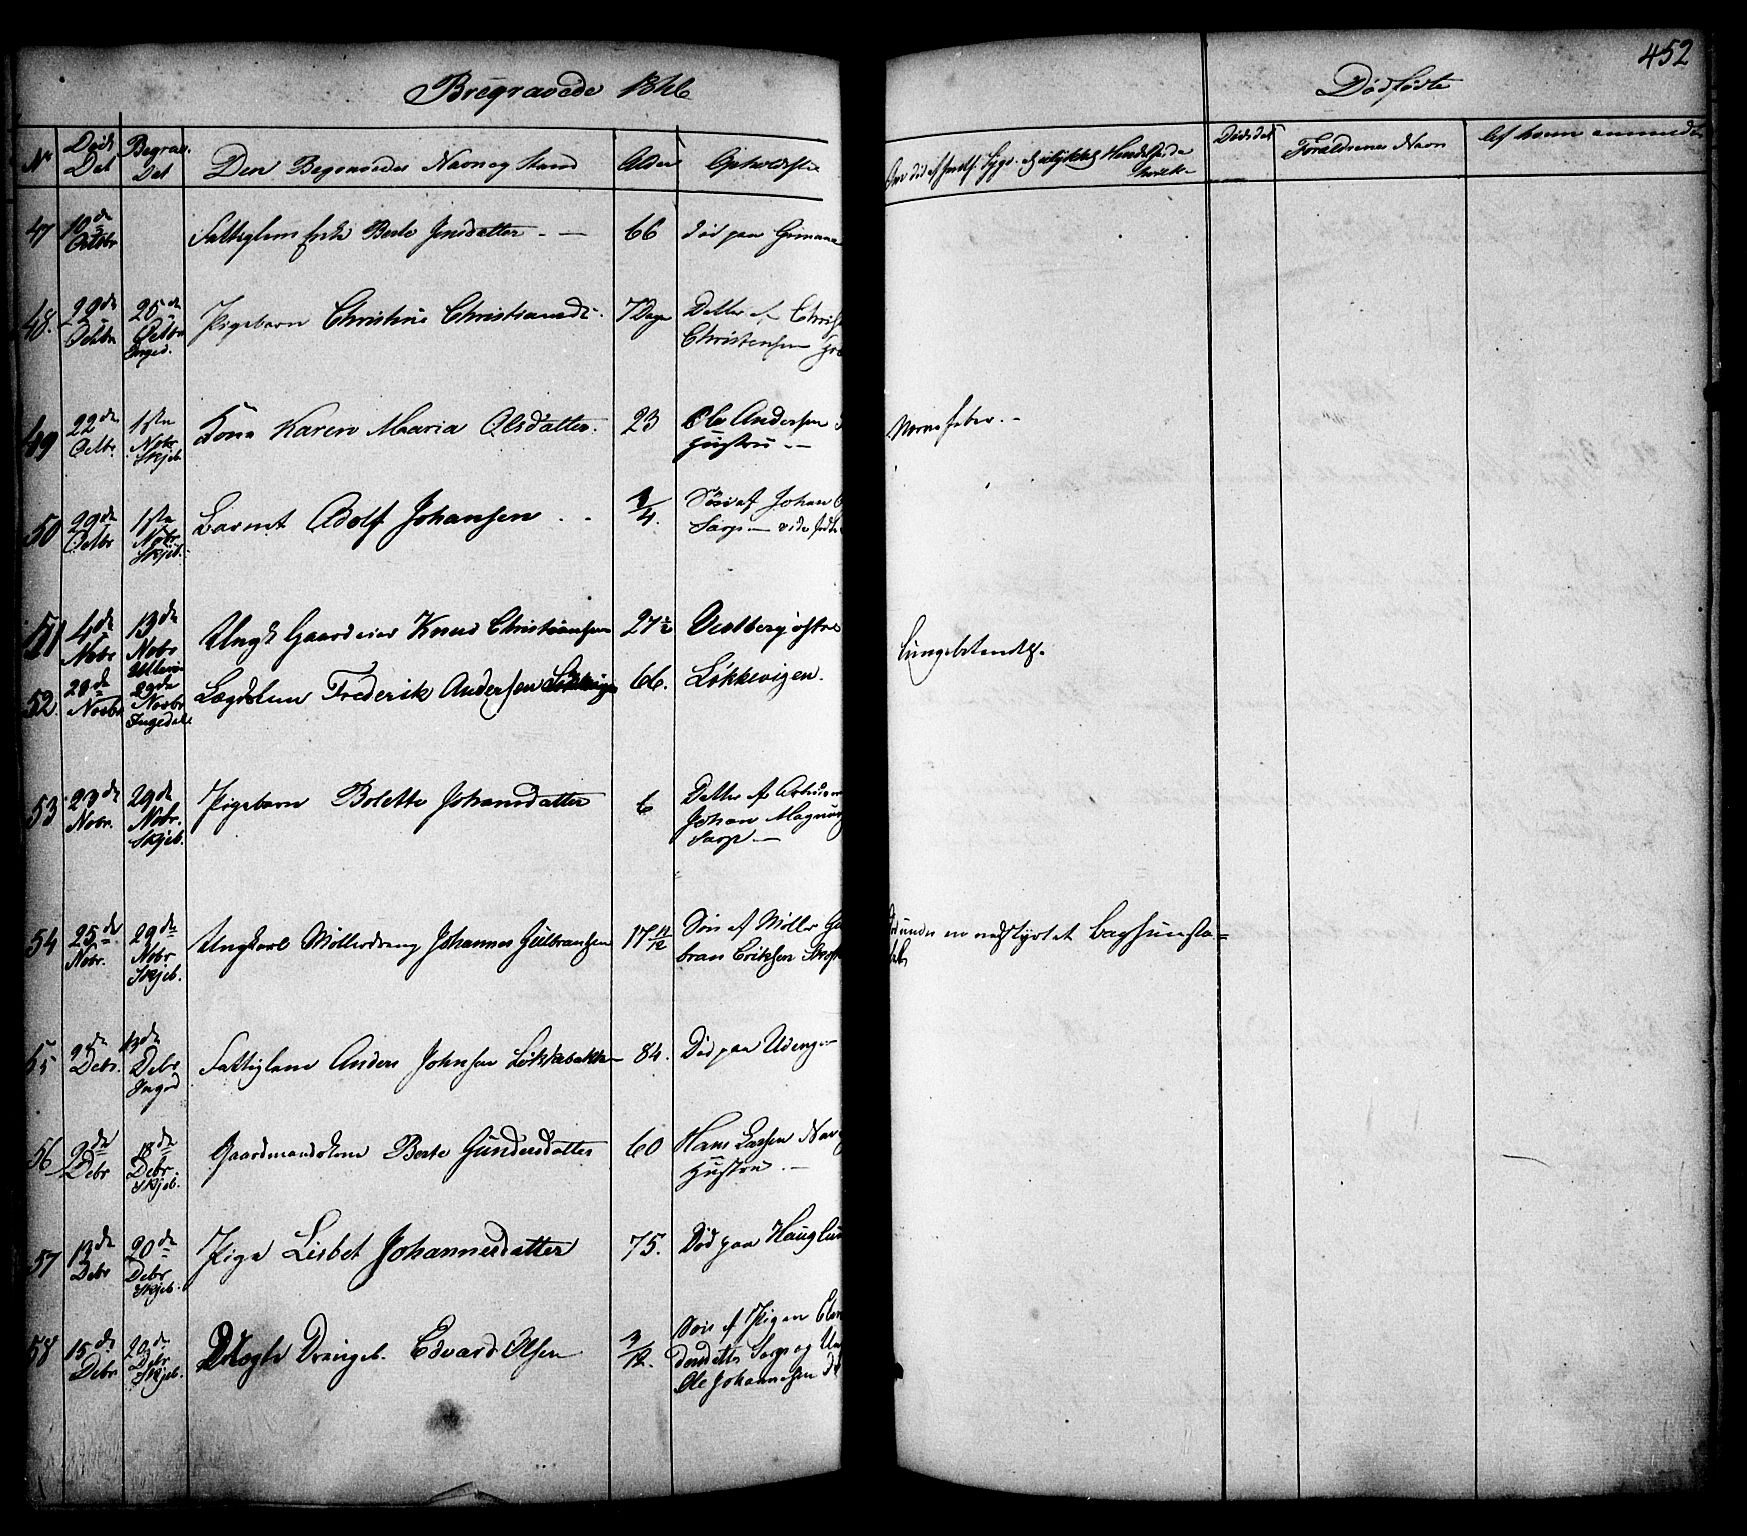 452
Begravede 1846
Dødfødte
Nr
Døds Det
Begrav. Det
Den Begravedes Navn og Stand
Alder
Opholdsste
Dødsdat
Forældrenes Navn
Af hvem anmeldt
47 10de Octobr Fattiglem Enke Berte Jensdatter. — 66 død paa
48. 22de Octbr 25de Octbr Inged. Pigebarn Christine Christiansdt. 7 Dage Datter af Chris
Christensen
49 22de Octbr 1ste Nobr Skjeb. Kone Karen Maria Olsdatter. 23 Ole Andersen
Hustru —
50 29de Octbr 1ste Nobr Skjeb. Barnet Adolf Johansen . . 1/4. Søn af Johan
Sarp —
51 4de Nobr 13de Nobr Ungk Gaardeier Knud Christiansen 27 1/2
Lungebetendelse.
52. 20de Novbr 29de Novbr Ingedal Lægdslem Frederik Andersen 66. Løkkevigen.
53 23de Nobr. 29de Nobr. Skjeb. Pigebarn Bolette Johansdatter 6 Datter af Arbeidsm
Johan Magnus
Sarp —
54 25de Nobr. 29de Nobr Skjeb. Ungkarl Møllerdreng Johannes Gulbransen 17 11/12 Søn af Møller Gu
bran Eriksen
55 9de Debr. 13de Debr Inged Fattiglem Anders Johnsen Løkkebakke 84. Død paa
56 9de Debr 18de Debr. Skjeb. Gaardmandskone Berte Gundersdatter 60 Hans Larsen
Hustru. —
57 13de Debr 20de Debr Skjeb. Pige Lisbet Johannesdatter 75. Død paa Hauglun
58 15de Debr 20de Debr Skjeb. Uægte Drengeb. Edvard Olsen 3/12. Søn af Pigen
Sarp og
Ole Johannesen